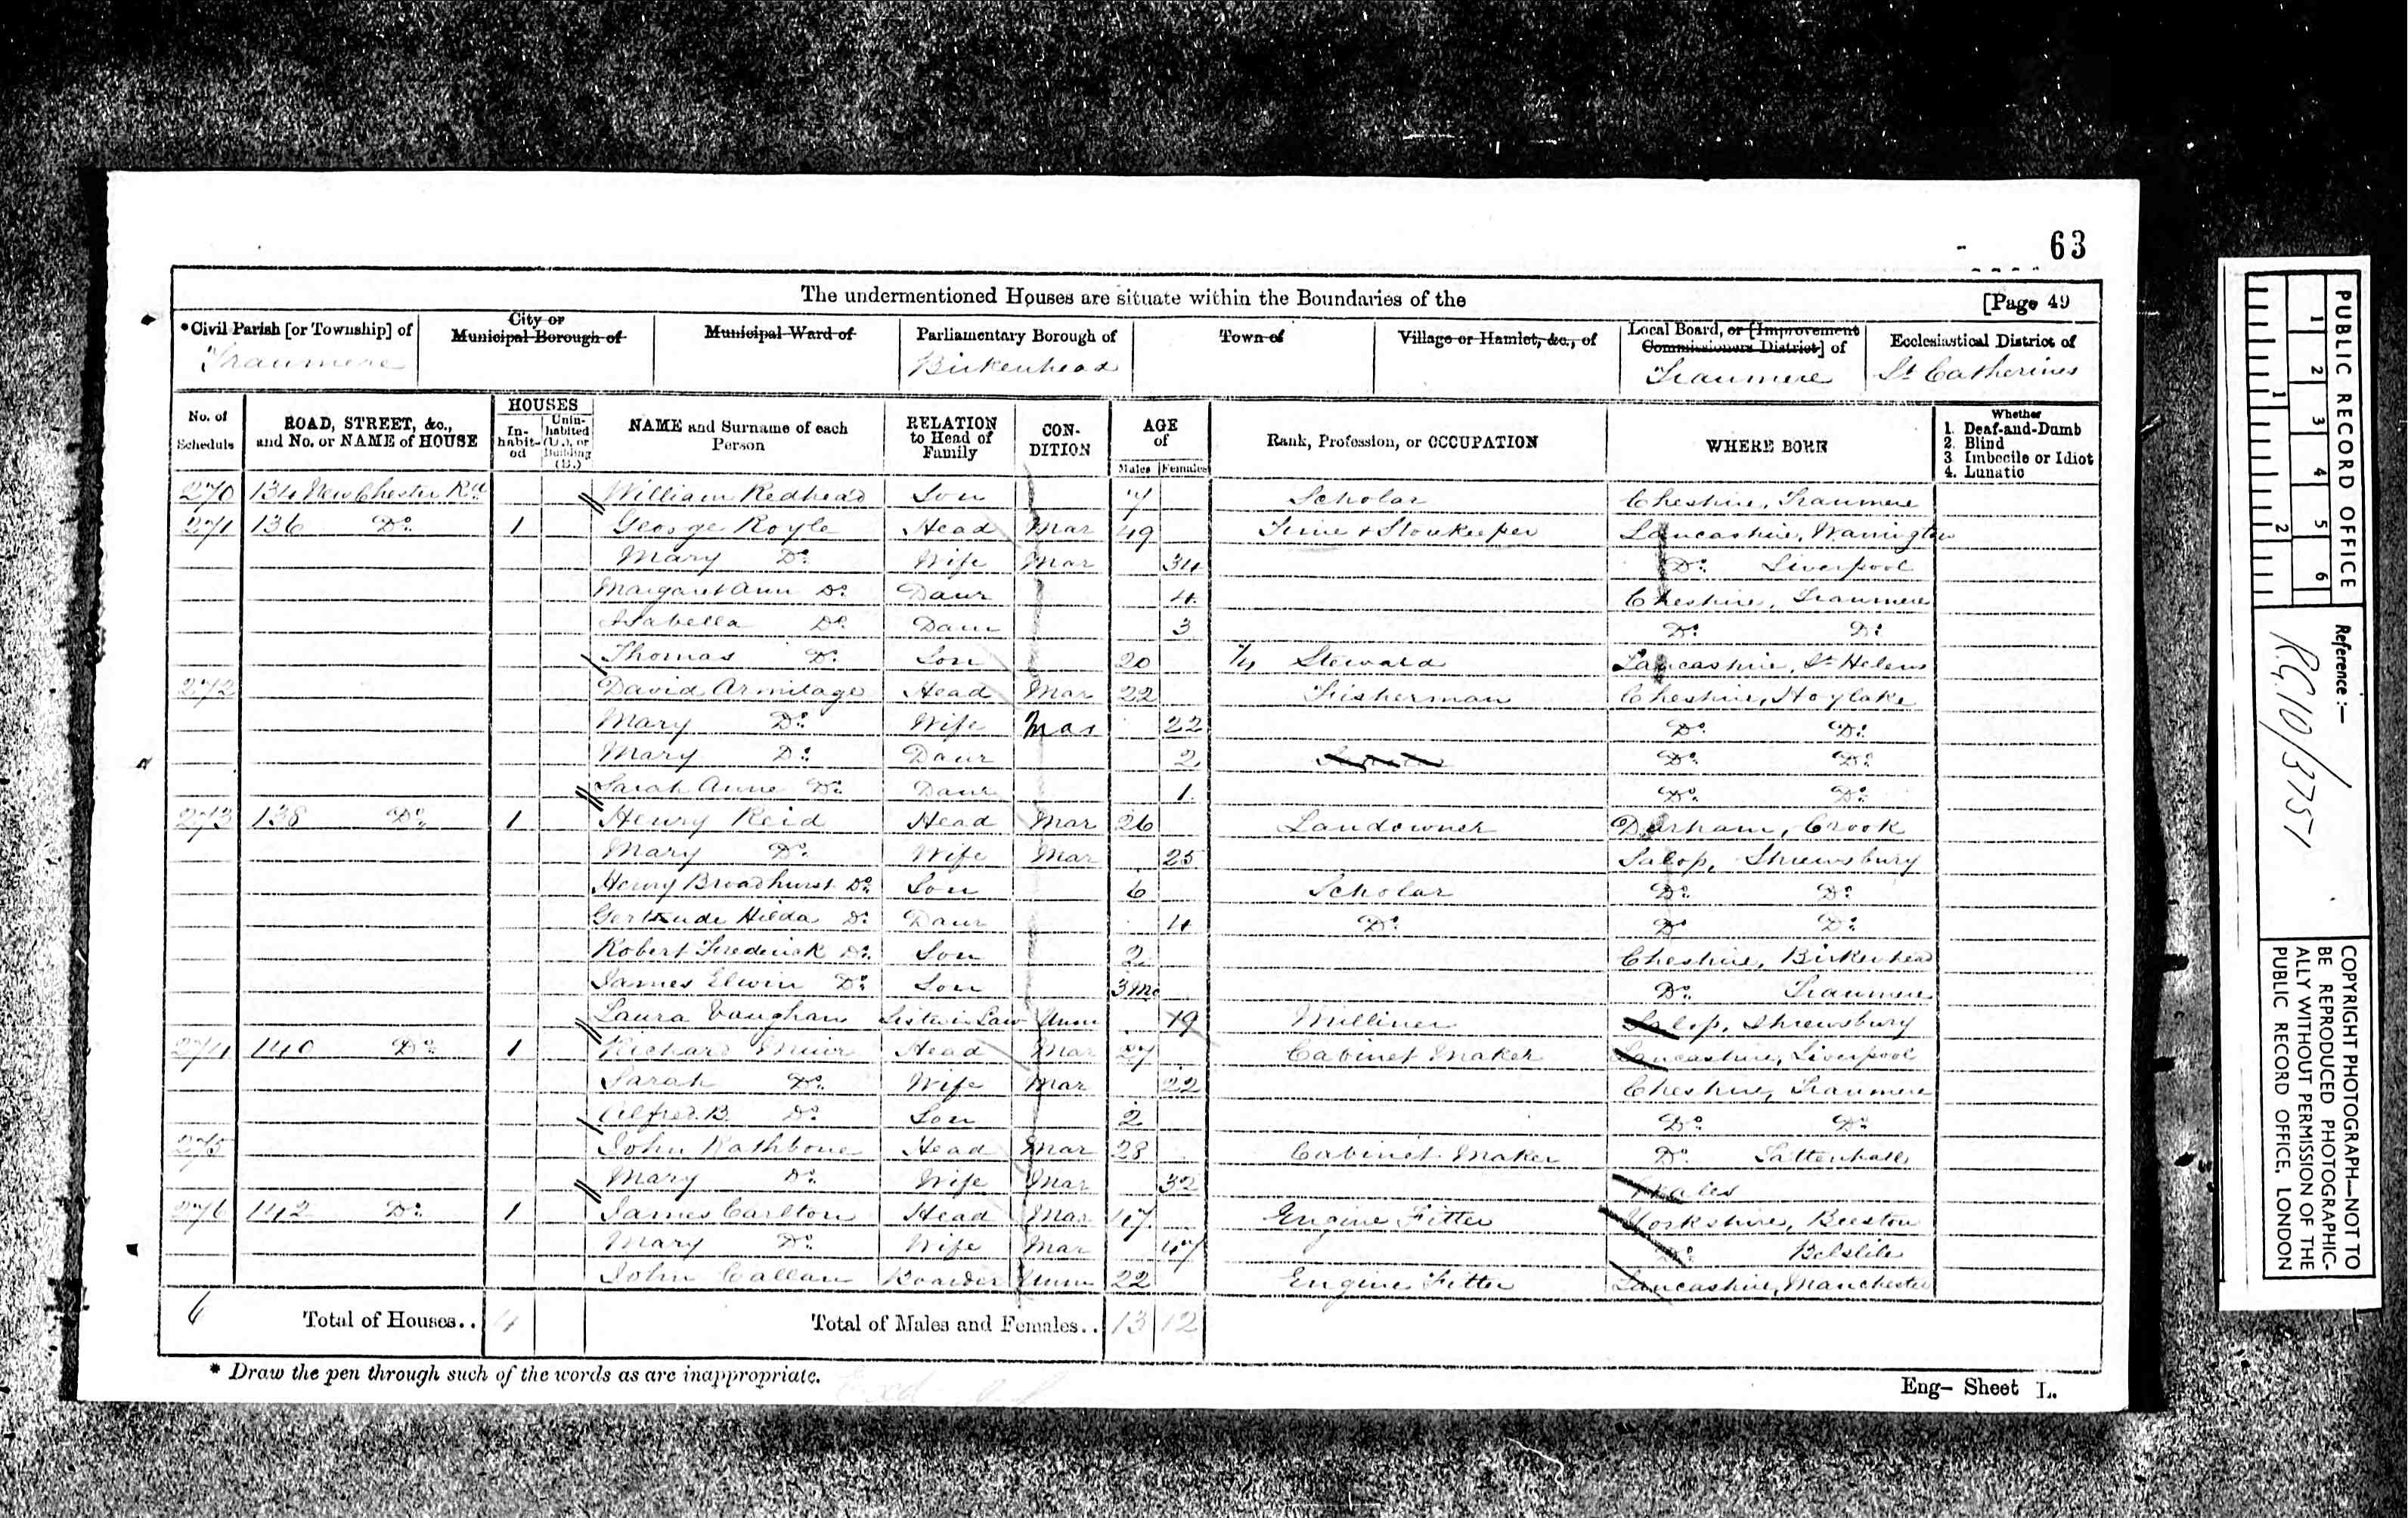 63
The undermentioned Houses are situate within the Boundaries of the [Page 49
*Civil Parish [or Township] of City or Municipal Borough of Municipal Ward of Parliamentary Borough of Town of Village or Hamlet, &c., of Local Board, or [Improvement Commissioners District] of Ecclesiastical District of
Tranmere Birkenhead Tranmere St Catherines
No. of Schedule ROAD, STREET, &c., and No. or NAME of HOUSE HOUSES Inhabited Uninhabited (U.), or Building (B.) NAME and Surname of each Person RELATION to Head of Family CONDITION AGE of Males Females Rank, Profession, or OCCUPATION WHERE BORN Whether 1. Deaf-and-Dumb 2. Blind 3. Imbecile or Idiot 4. Lunatic
270 134 New Chester Rd William Redhead Son 7 Scholar Cheshire, Tranmere
271 136 Do. 1 George Royle Head Mar 49 Time & Storekeeper Lancashire, Warrington
Mary Do. Wife Mar 34 Do. Liverpool
Margaret Ann Do. Daur 4 Cheshire, Tranmere
Isabella Do. Daur 3 Do. Do.
Thomas Do. Son 20 Steward Lancashire, St Helens
272 David Armitage Head Mar 22 Fisherman Cheshire, Hoylake
Mary Do. Wife Mar 22 Do. Do.
Mary Do. Daur 2 Do. Do.
Sarah Anne Do. Daur 1 Do. Do.
273 138 Do. 1 Henry Reid Head Mar 26 Landowner Durham, Crook
Mary Do. Wife Mar 25 Salop, Shrewsbury
Henry Broadhurst Do. Son 6 Scholar Do. Do.
Gertrude Hilda Do. Daur 4 Do. Do. Do.
Robert Frederick Do. Son 2 Cheshire, Birkenhead
James Elwin Do. Son 3 Mo Do. Tranmere
Laura Vaughan Sister in Law Unm 19 Milliner Salop, Shrewsbury
274 140 Do. 1 Richard Muir Head Mar 27 Cabinet Maker Lancashire, Liverpool
Sarah Do. Wife Mar 22 Cheshire, Tranmere
Alfred B. Do. Son 2 Do. Do.
275 John Rathbone Head Mar 28 Cabinet Maker Do. Tattenhall
Mary Do. Wife Mar 32 Wales
276 142 Do. 1 James Carlton Head Mar 47 Engine Fitter Yorkshire, Beeston
Mary Do. Wife Mar 47 Do.
John Callan Boarder Unm 22 Engine Fitter Lancashire, Manchester
6 Total of Houses.. 4 Total of Males and Females.. 13 12
* Draw the pen through such of the words as are inappropriate.
Eng- Sheet L.
PUBLIC RECORD OFFICE
1 2 3 4 5 6
1 2
Reference :-
RG.10/3751
COPYRIGHT PHOTOGRAPH—NOT TO
BE REPRODUCED PHOTOGRAPHIC-
ALLY WITHOUT PERMISSION OF THE
PUBLIC RECORD OFFICE, LONDON